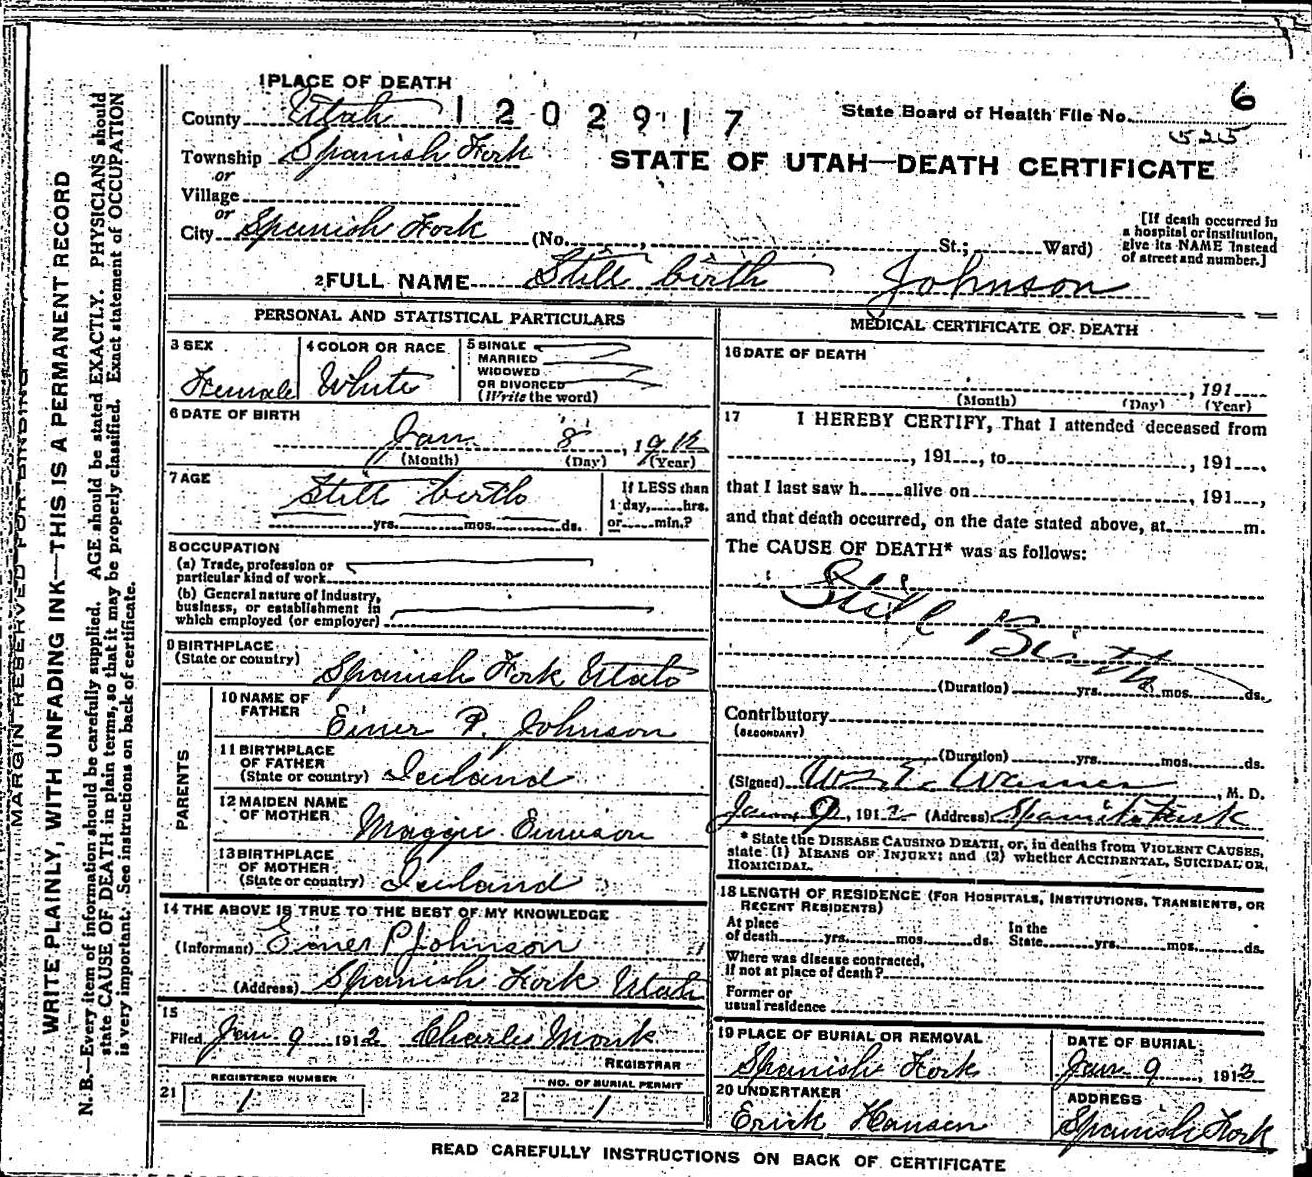 MARGIN RESERVED FOR BINDING
WRITE PLAINLY, WITH UNFADING INK—THIS IS A PERMANENT RECORD
N. B.—Every item of information should be carefully supplied. AGE should be stated EXACTLY. PHYSICIANS should
state CAUSE OF DEATH in plain terms, so that it may be properly classified. Exact statement of OCCUPATION
is very important. See instructions on back of certificate.
1 PLACE OF DEATH
County Utah 1202917
State Board of Health File No. 6
525
Township Spanish Fork
or
Village
or
City Spanish Fork (No. , St.; Ward)
STATE OF UTAH—DEATH CERTIFICATE
[If death occurred in
a hospital or institution,
give its NAME instead
of street and number.]
2 FULL NAME Still birth Johnson
PERSONAL AND STATISTICAL PARTICULARS
3 SEX
Female
4 COLOR OR RACE
White
5 SINGLE
MARRIED
WIDOWED
OR DIVORCED
(Write the word)
6 DATE OF BIRTH
Jan 8, 1912
(Month) (Day) (Year)
7 AGE
Still birth
yrs. mos. ds.
If LESS than
1 day, hrs.
or min.?
8 OCCUPATION
(a) Trade, profession or
particular kind of work
(b) General nature of Industry,
business, or establishment in
which employed (or employer)
9 BIRTHPLACE
(State or country)
Spanish Fork Utah
PARENTS
10 NAME OF
FATHER
Einer P. Johnson
11 BIRTHPLACE
OF FATHER
(State or country) Iceland
12 MAIDEN NAME
OF MOTHER
Maggie Einerson
13 BIRTHPLACE
OF MOTHER
(State or country) Iceland
14 THE ABOVE IS TRUE TO THE BEST OF MY KNOWLEDGE
(Informant) Einer P Johnson
(Address) Spanish Fork Utah
15
Filed Jan 9 1912 Charles Monk
REGISTRAR
21 REGISTERED NUMBER
1
22 NO. OF BURIAL PERMIT
1
MEDICAL CERTIFICATE OF DEATH
16 DATE OF DEATH
, 191
(Month) (Day) (Year)
17 I HEREBY CERTIFY, That I attended deceased from
, 191 , to , 191 ,
that I last saw h alive on , 191 ,
and that death occurred, on the date stated above, at m.
The CAUSE OF DEATH* was as follows:
Still Birth
(Duration) yrs. mos. ds.
Contributory
(SECONDARY)
(Duration) yrs. mos. ds.
(Signed) Warner, M. D.
Jan 9, 1912 (Address) Spanish Fork
* State the DISEASE CAUSING DEATH, or, in deaths from VIOLENT CAUSES,
state (1) MEANS OF INJURY; and (2) whether ACCIDENTAL, SUICIDAL OR,
HOMICIDAL.
18 LENGTH OF RESIDENCE (FOR HOSPITALS, INSTITUTIONS, TRANSIENTS, OR
RECENT RESIDENTS)
At place
of death yrs. mos. ds.
In the
State yrs. mos. ds.
Where was disease contracted,
if not at place of death?
Former or
usual residence
19 PLACE OF BURIAL OR REMOVAL
Spanish Fork
DATE OF BURIAL
Jan 9, 1912
20 UNDERTAKER
Erick Hansen
ADDRESS
Spanish Fork
READ CAREFULLY INSTRUCTIONS ON BACK OF CERTIFICATE